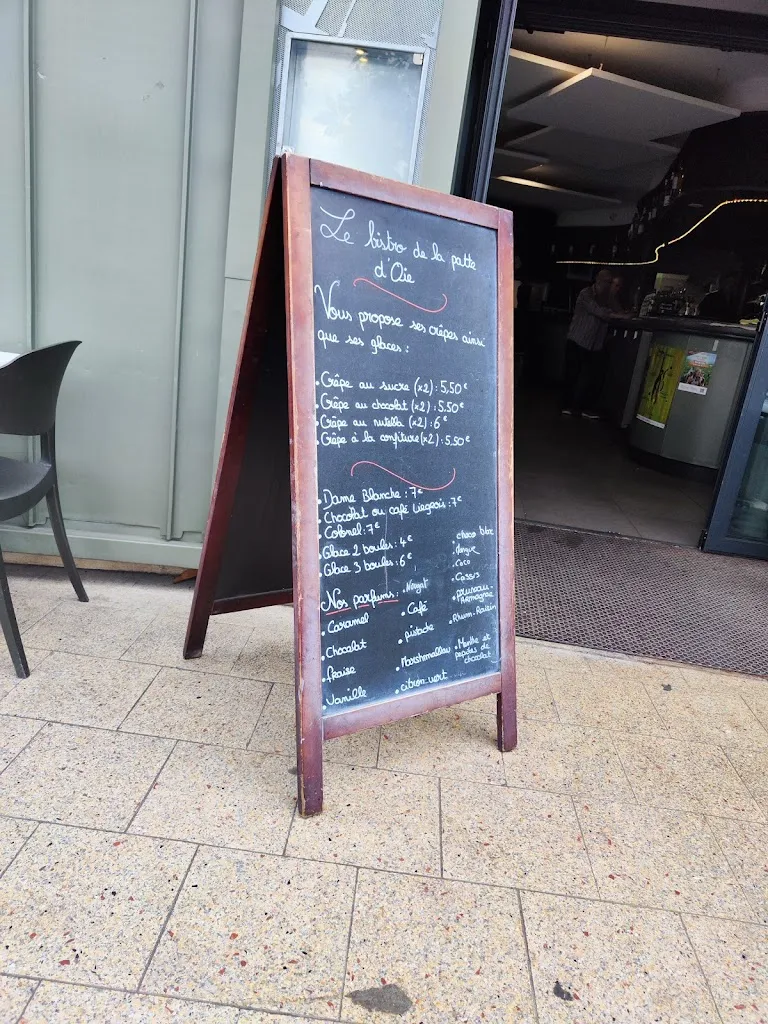 Le bistro de la patte
d'Oie
Vous propose ses crêpes ainsi
que ses glaces :
• Crêpe au sucre (x2) : 5,50€
• Crêpe au chocolat (x2) : 5,50€
• Crêpe au nutella (x2) : 6€
• Crêpe à la confiture (x2) : 5,50€
• Dame Blanche : 7€
• Chocolat ou café Liegeois : 7€
• Colonel : 7€
• Glace 2 boules : 4€
• Glace 3 boules : 6€
Nos parfums :
• Caramel
• Chocolat
• fraise
• Vanille
• Nougat
• Café
• pistache
• Marshmallow
• citron-vert
• choco blanc
• Coco
• Cassis
• pruneau-
Armagnac
• Rhum-Raisin
• Menthe et
pépites de
chocolat